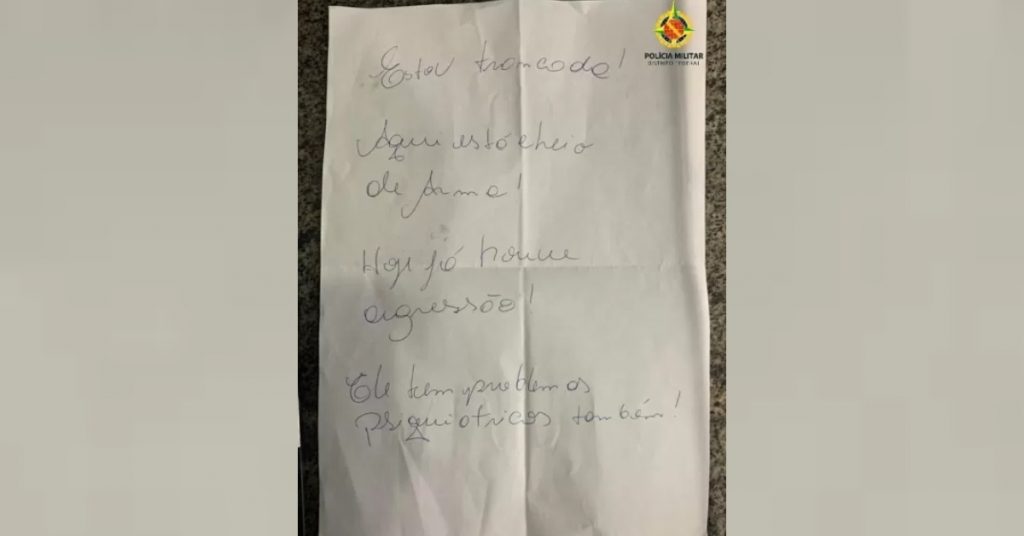 POLÍCIA MILITAR
DISTRITO FEDERAL
Estou trancada!
Aqui está cheio
de arma!
Hoje já houve
agressão!
Ele tem problemas
psiquiátricos também!